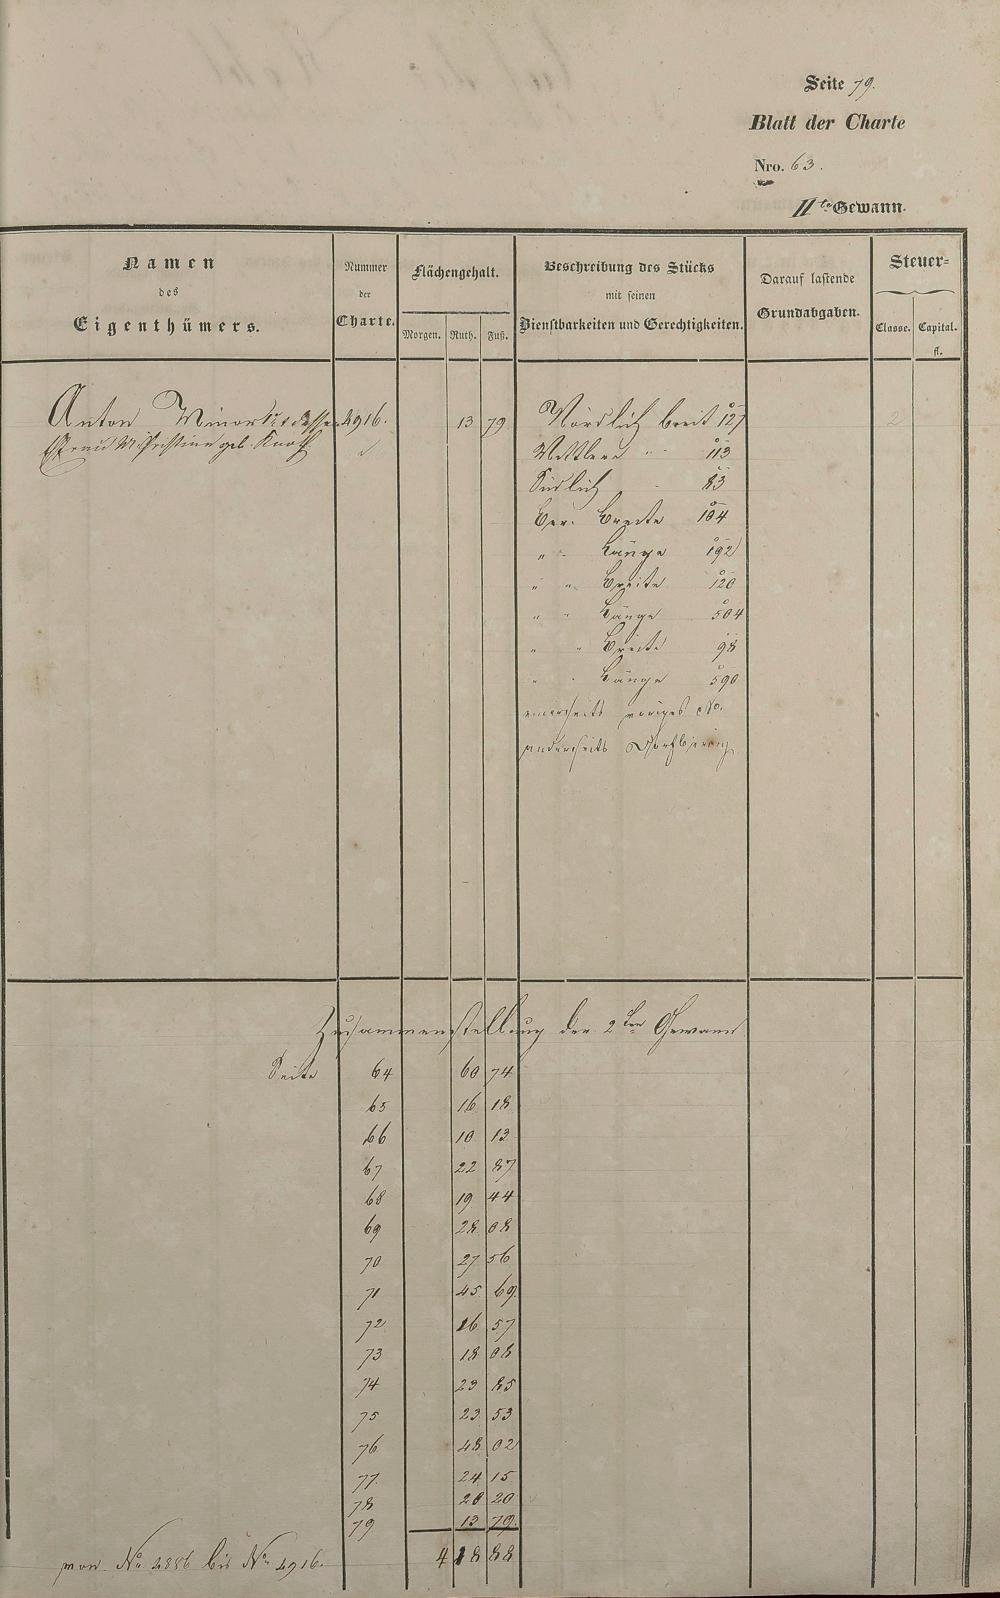 Seite 79.
Blatt der Charte
Nro. 63.
IIte Gewann.
Namen
des
Eigenthümers.
Nummer
der
Charte.
Flächengehalt.
Morgen. Ruth. Fuß.
Beschreibung des Stücks
mit seinen
Dienstbarkeiten und Gerechtigkeiten.
Darauf lastende
Grundabgaben.
Steuer-
Classe. Capital.
fl.
Anton dessen 4916. 13 79 Nördlich breit 127 2
Frau Christine geb. Knoth
Mittlere " " 113
Südlich " 83
Ber. Breite 104
" " Länge 192
" " Breite 120
" " Länge 504
" " Breite 98
" " Länge 590
einerseits voriges No.
anderseits Dorfbering
Zusammenstellung der 2ten Gewann
Seite 64 60 74
65 16 18
66 10 13
67 22 87
68 19 44
69 28 08
70 27 56
71 45 69
72 16 57
73 18 08
74 23 85
75 23 53
76 48 02
77. 24 15
78 20 20
79 13 79.
von No. bis No. 4916. 4 18 88